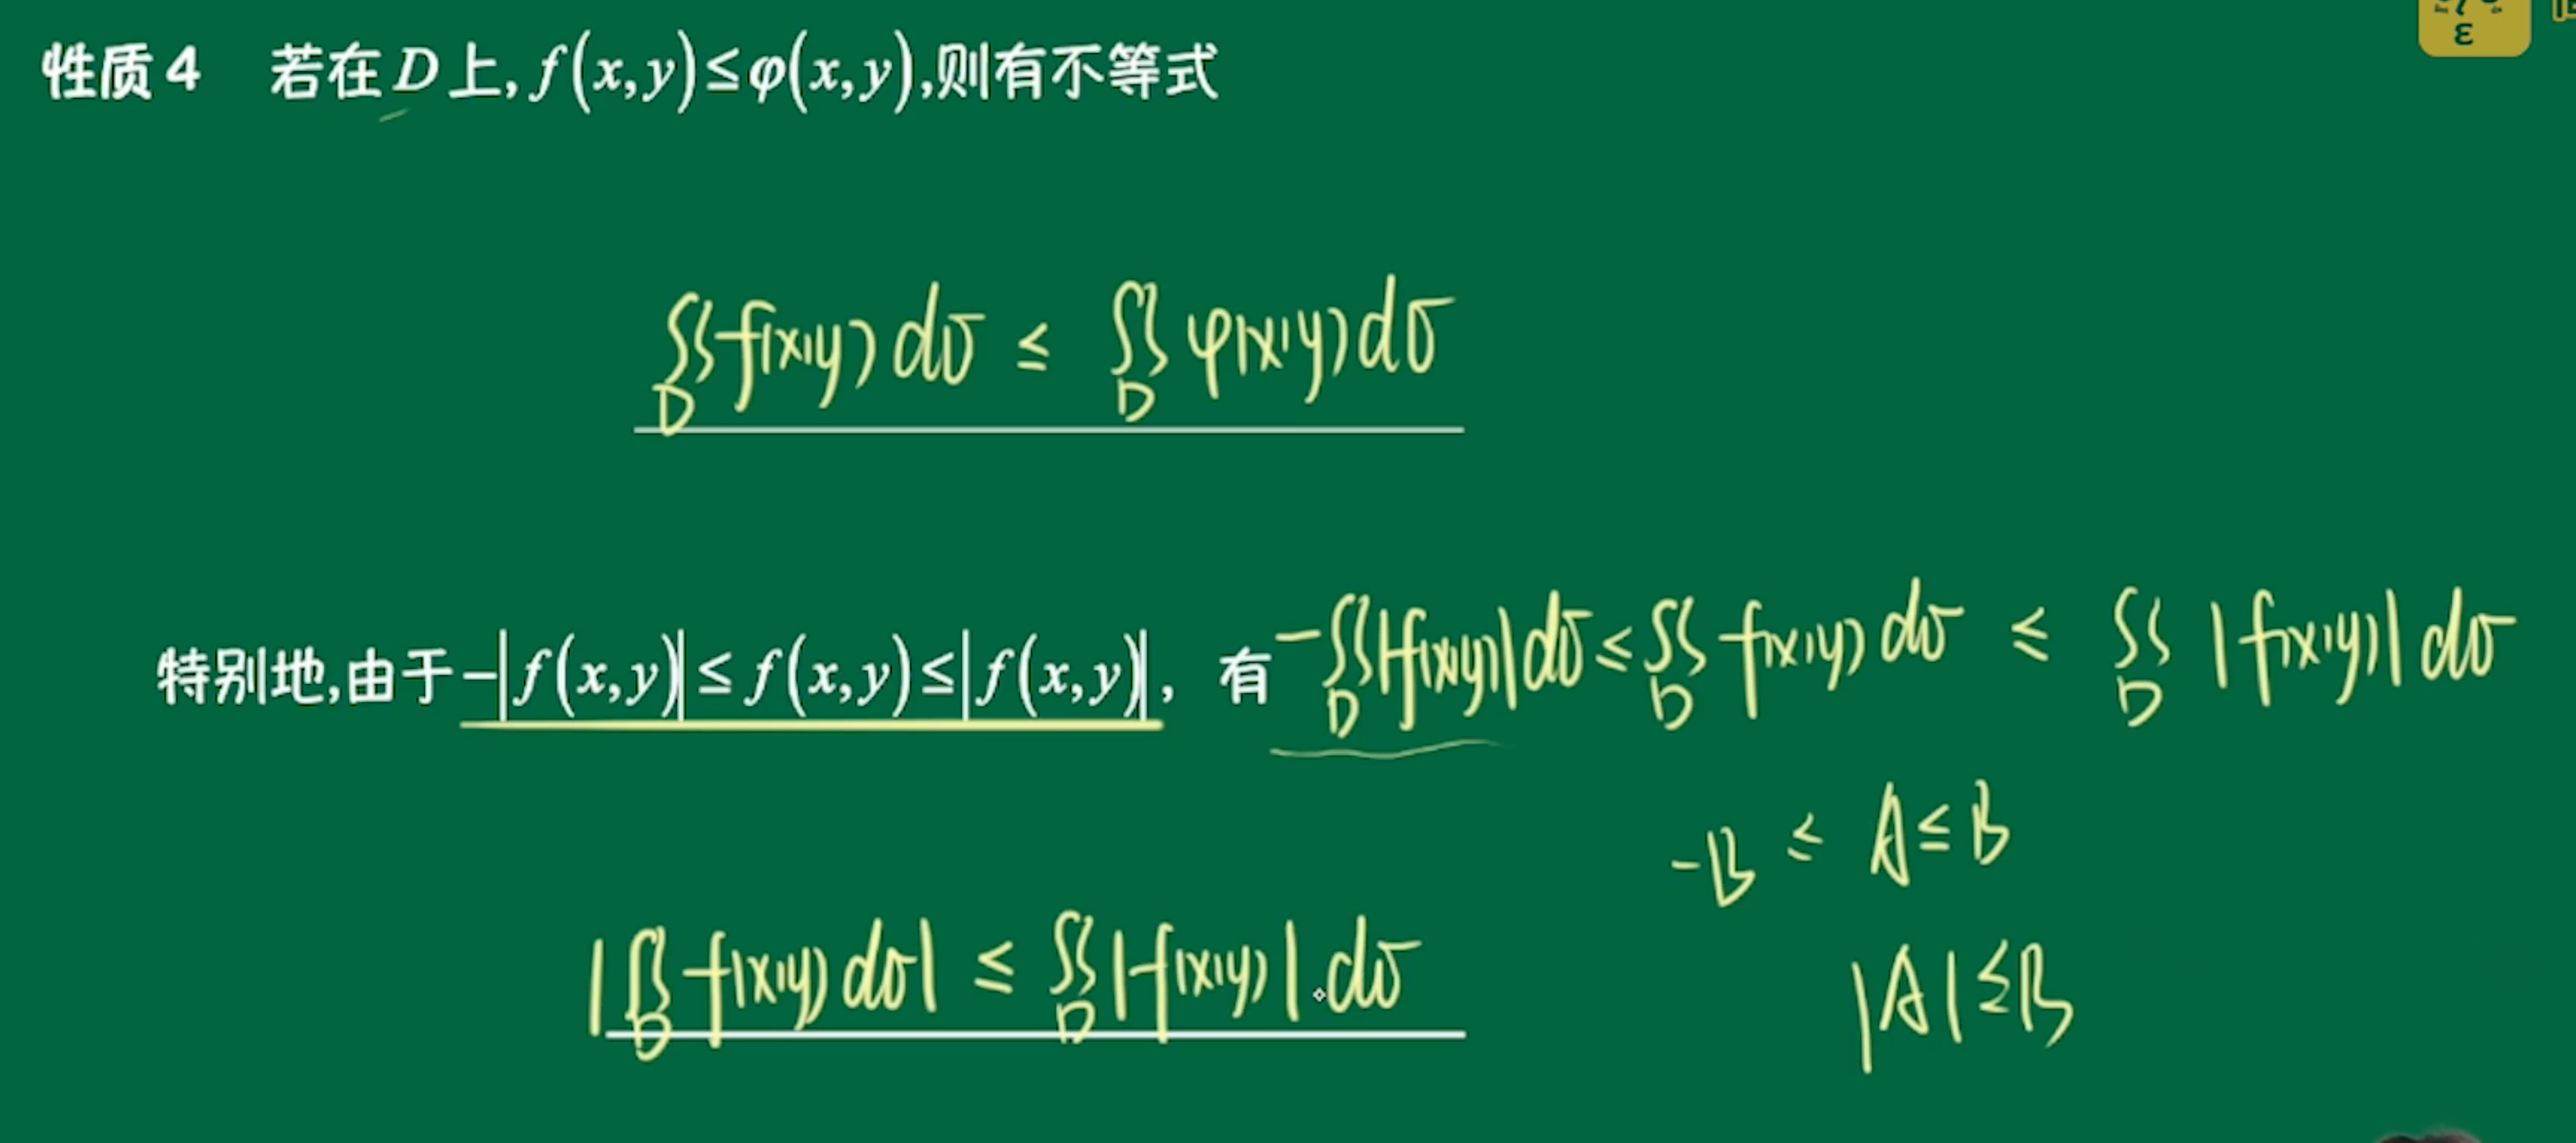 性质4 若在D上,f(x,y)≤φ(x,y),则有不等式
∬_D f(x,y)dσ ≤ ∬_D φ(x,y)dσ
特别地,由于-|f(x,y)|≤f(x,y)≤|f(x,y)|, 有 -∬_D|f(x,y)|dσ ≤ ∬_D f(x,y)dσ ≤ ∬_D |f(x,y)|dσ
-B ≤ A ≤ B
|∬_D f(x,y)dσ| ≤ ∬_D |f(x,y)|dσ
|A| ≤ B